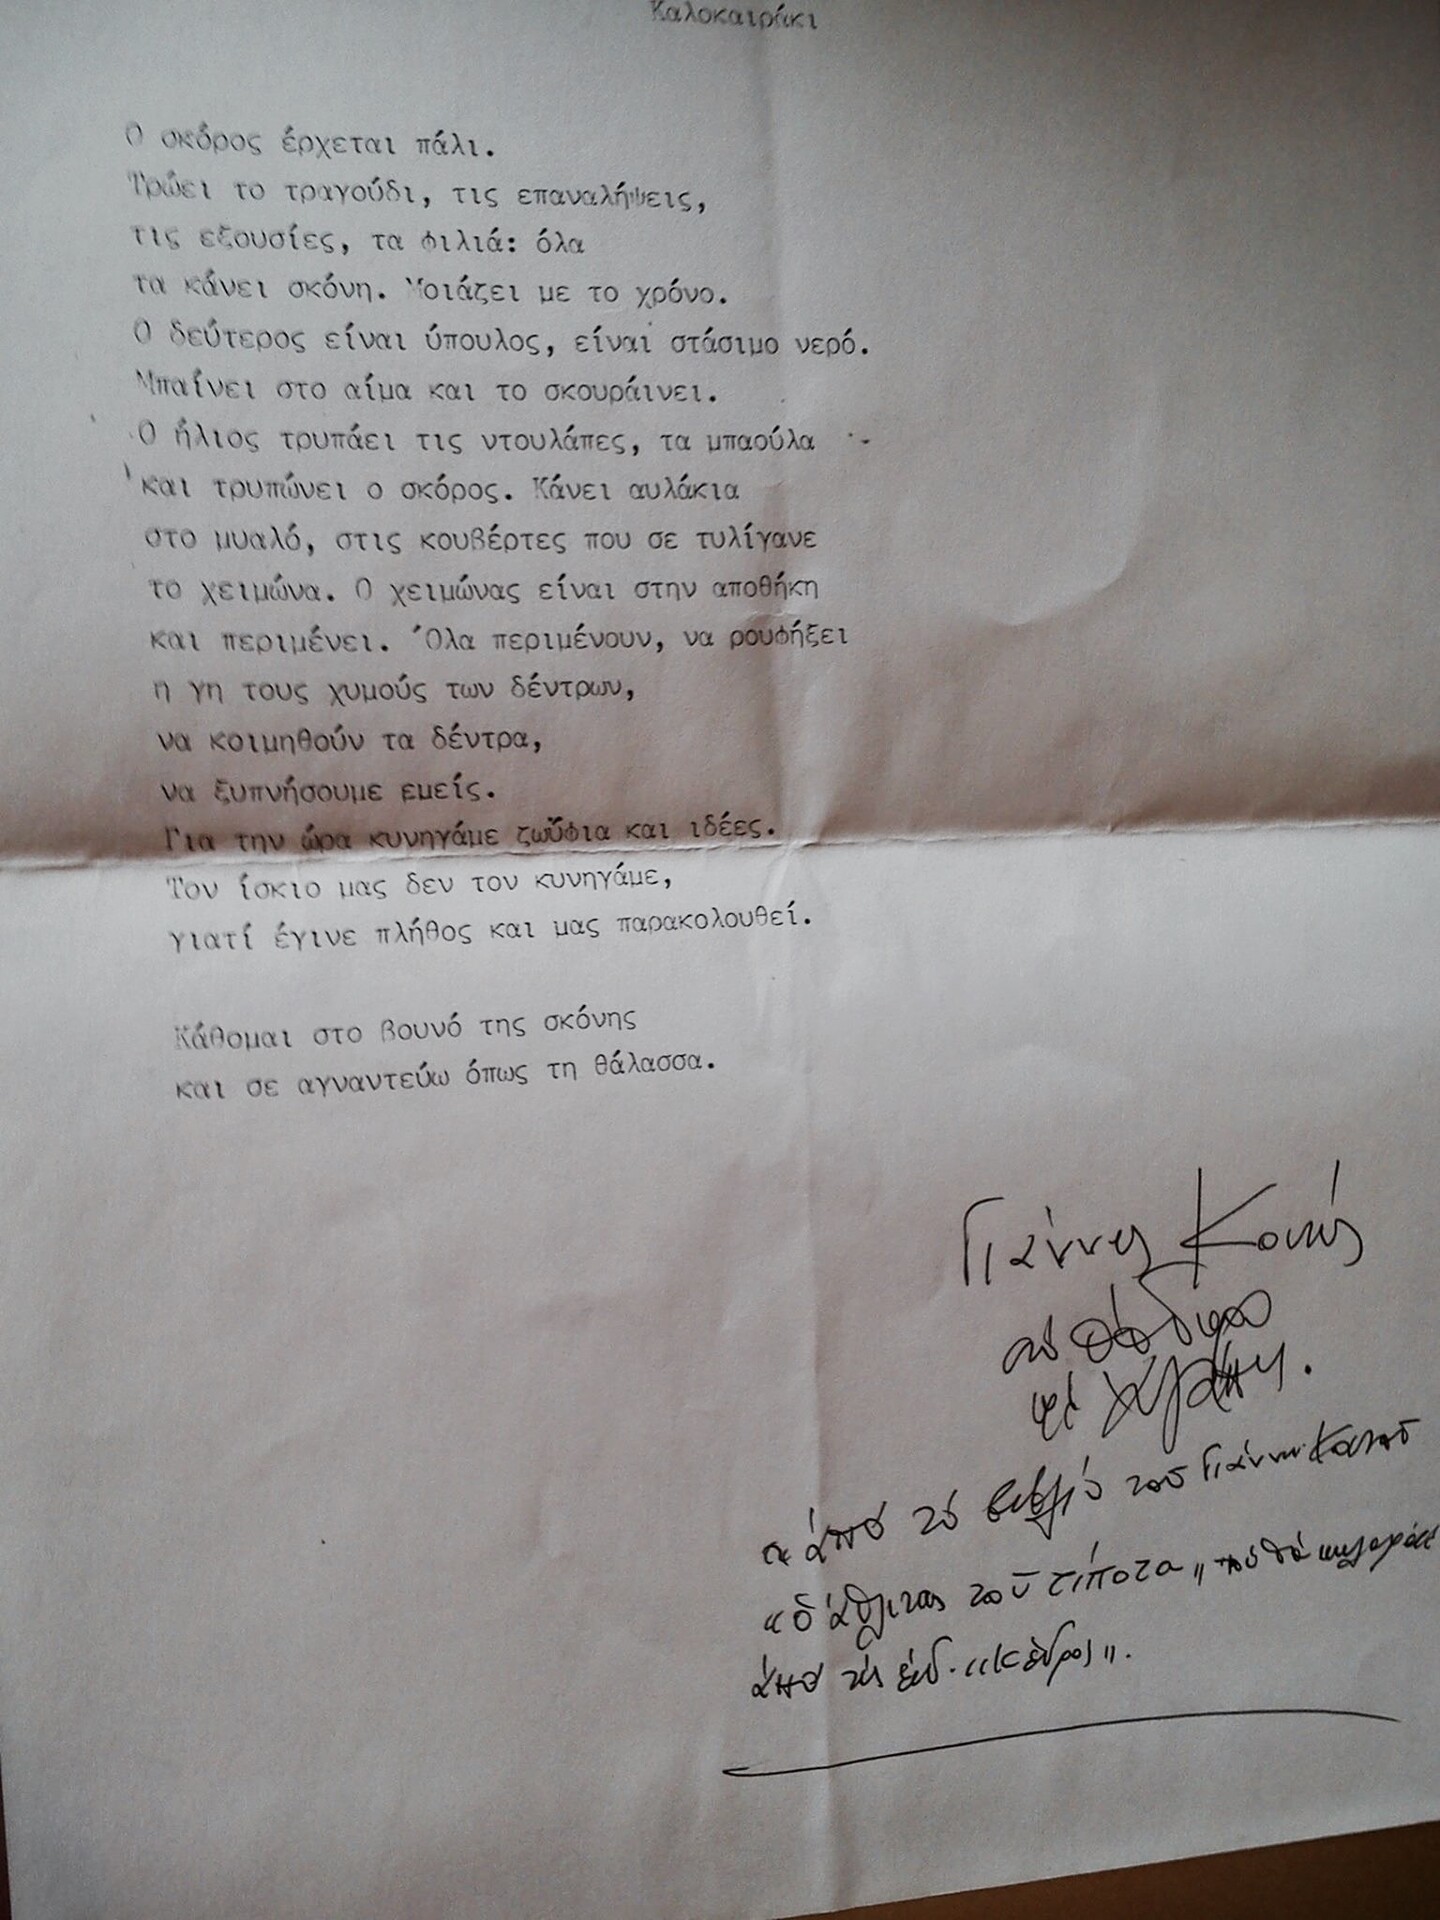 Καλοκαιράκι
Ο σκόρος έρχεται πάλι.
Τρώει το τραγούδι, τις επαναλήψεις,
τις εξουσίες, τα φιλιά: όλα
τα κάνει σκόνη. Μοιάζει με το χρόνο.
Ο δεύτερος είναι ύπουλος, είναι στάσιμο νερό.
Μπαίνει στο αίμα και το σκουράινει.
Ο ήλιος τρυπάει τις ντουλάπες, τα μπαούλα
και τρυπώνει ο σκόρος. Κάνει αυλάκια
στο μυαλό, στις κουβέρτες που σε τυλίγανε
το χειμώνα. Ο χειμώνας είναι στην αποθήκη
και περιμένει. Όλα περιμένουν, να ρουφήξει
η γη τους χυμούς των δέντρων,
να κοιμηθούν τα δέντρα,
να ξυπνήσουμε εμείς.
Για την ώρα κυνηγάμε ζωΰφια και ιδέες.
Τον ίσκιο μας δεν τον κυνηγάμε,
γιατί έγινε πλήθος και μας παρακολουθεί.
Κάθομαι στο βουνό της σκόνης
και σε αγναντεύω όπως τη θάλασσα.
Γιάννης
μέ ἀγάπη.
ἀπό τό βιβλίο τοῦ Γιάννη
τοῦ τίποτα" πού θά
ἀπό τίς ἐκδ. "Κέδρος".